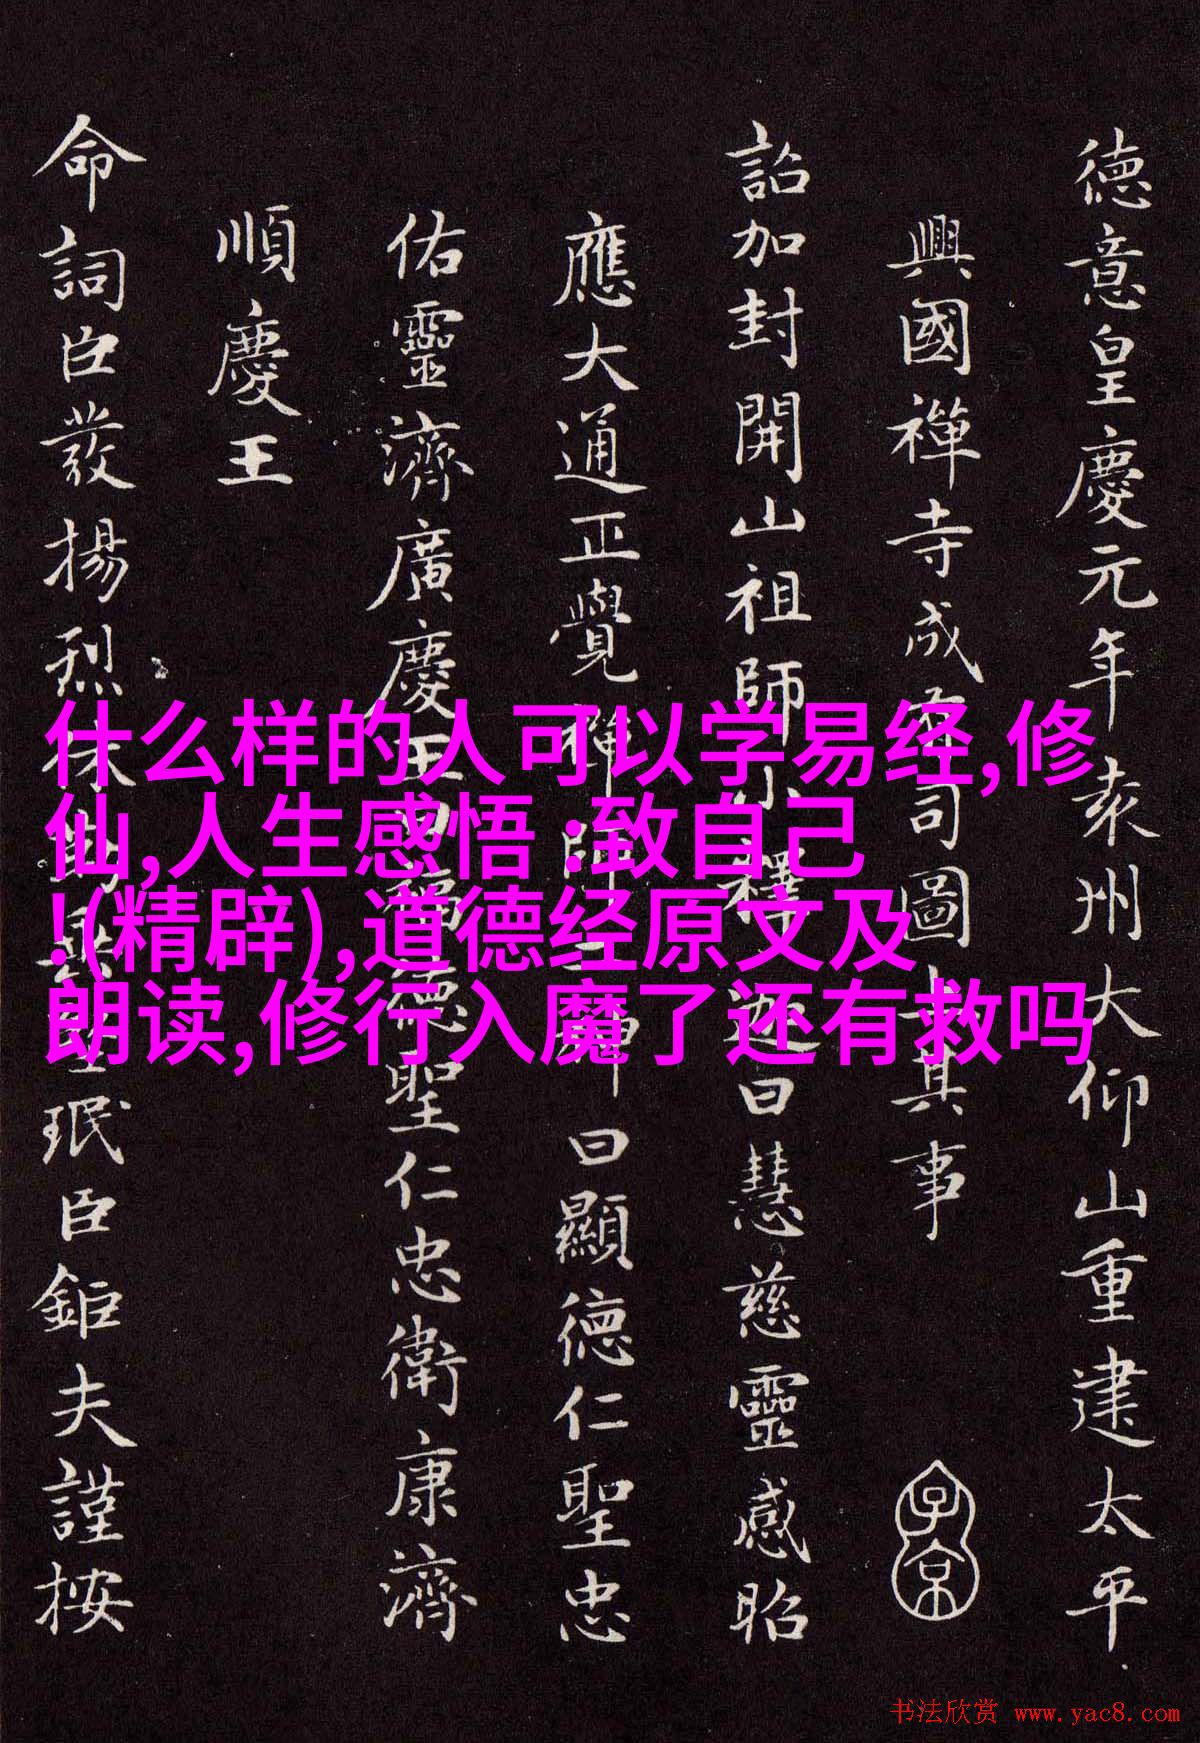 德意皇慶元年袁州大仰山重建太平
興國禪寺成有司圖上其事
詔加封開山祖師小釋迦曰慧慈靈感昭
應大通正覺禪師二神曰顯德仁聖忠
佑靈濟廣慶王曰福德聖仁忠衛康濟
順慶王
命詞臣發揚烈休昭無臣鉅夫謹按
什么样的人可以学易经,修
仙,人生感悟 :致自己
!(精辟),道德经原文及
朗读,修行入魔了还有救吗
书法欣赏 www.yac8.com